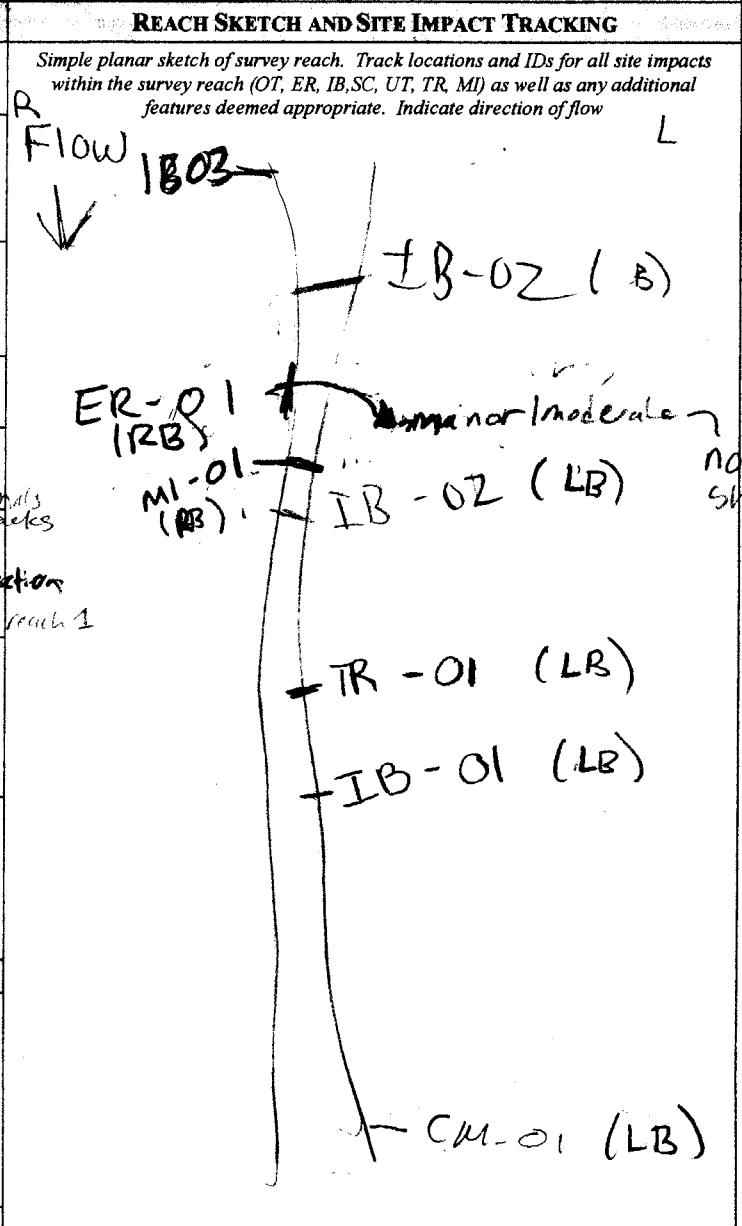 REACH SKETCH AND SITE IMPACT TRACKING
Simple planar sketch of survey reach. Track locations and IDs for all site impacts
within the survey reach (OT, ER, IB,SC, UT, TR, MI) as well as any additional
features deemed appropriate. Indicate direction of flow
R
L
Flow
IB03
IB-02 (B)
ER-01
(RB)
minor/moderate
no
MI-01
(RB)
IB-02 (LB)
reach 1
TR-01 (LB)
IB-01 (LB)
CM-01 (LB)